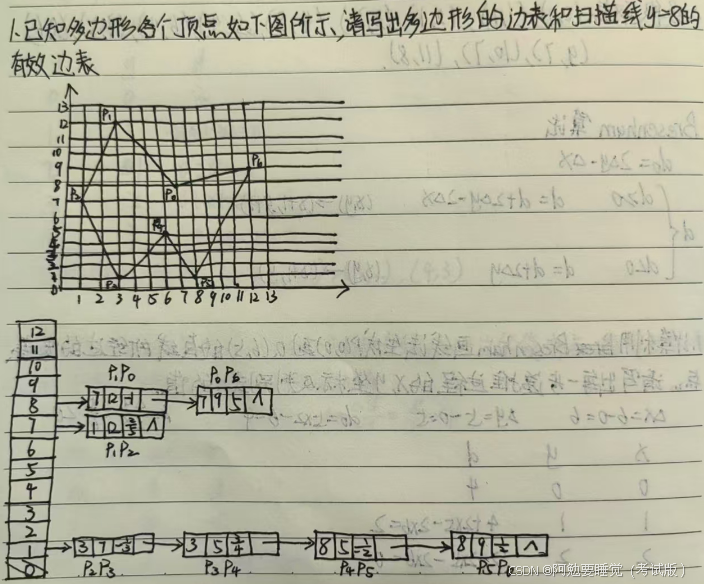 1.已知多边形各个顶点如下图所示,请写出多边形的边表和扫描线y=8的
有效边表
13
12
11
10
9
8
7
6
5
4
3
2
0
P1
P6
P0
P2
P4
P3
P5
1 2 3 4 5 6 7 8 9 10 11 12 13
12
11
10
9
8
7
6
5
4
3
2
1
0
P1P0
7 12 -1
P0P6
7 9 5 ∧
1 12 3/5 ∧
P1P2
3 7 -3/5
P2P3
3 5 3/4
P3P4
8 5 -1/2
P4P5
8 9 1/2 ∧
P5P6
CSDN @阿勉要睡觉(考试版)